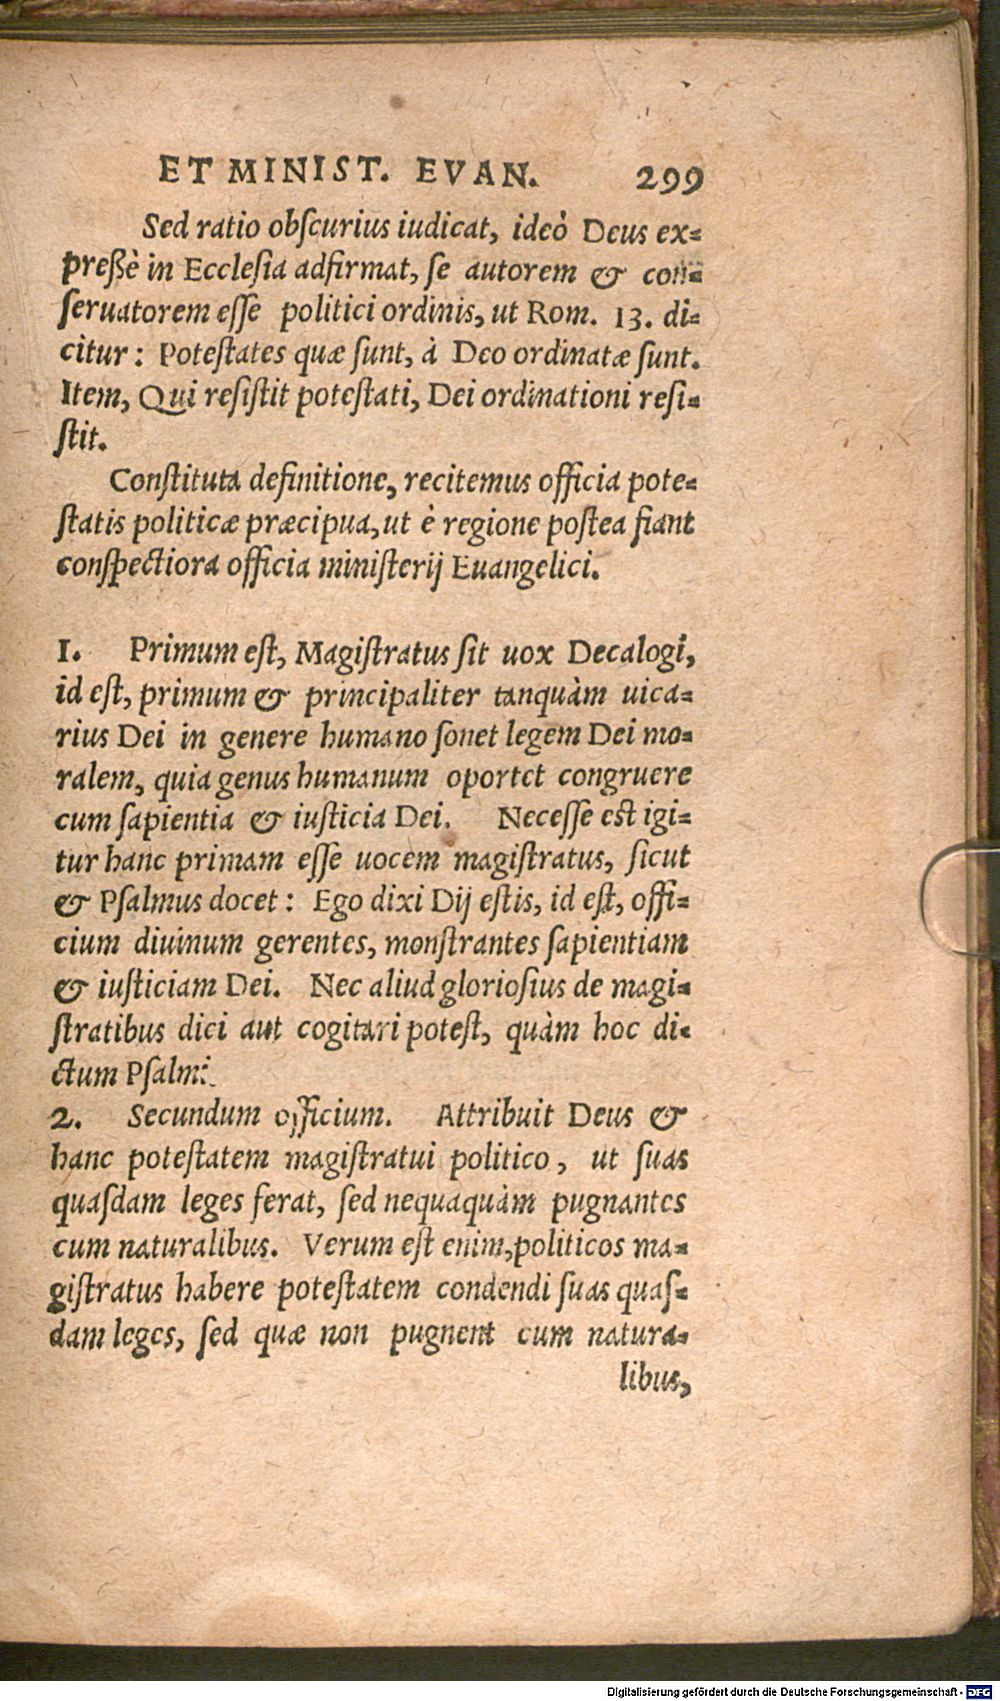 ET MINIST. EVAN. 299
Sed ratio obſcurius iudicat, ideò Deus ex-
preßè in Eccleſia adfirmat, ſe autorem & con-
ſeruatorem eſſe politici ordinis, ut Rom. 13. di-
citur: Poteſtates quæ ſunt, à Deo ordinatæ ſunt.
Item, Qui reſiſtit poteſtati, Dei ordinationi reſi-
ſtit.
Conſtituta definitione, recitemus officia pote-
ſtatis politicæ præcipua, ut è regione poſtea fiant
conſpectiora officia miniſterij Euangelici.
1. Primum eſt, Magiſtratus ſit uox Decalogi,
id eſt, primum & principaliter tanquàm uica-
rius Dei in genere humano ſonet legem Dei mo-
ralem, quia genus humanum oportet congruere
cum ſapientia & iuſticia Dei. Neceſſe est igi-
tur hanc primam eſſe uocem magiſtratus, ſicut
& Pſalmus docet: Ego dixi Dij eſtis, id eſt, offi-
cium diuinum gerentes, monſtrantes ſapientiam
& iuſticiam Dei. Nec aliud glorioſius de magi-
ſtratibus dici aut cogitari poteſt, quàm hoc di-
ctum Pſalmi.
2. Secundum officium. Attribuit Deus &
hanc poteſtatem magiſtratui politico, ut ſuas
quaſdam leges ferat, ſed nequaquàm pugnantes
cum naturalibus. Verum eſt enim, politicos ma-
giſtratus habere poteſtatem condendi ſuas quaſ-
dam leges, ſed quæ non pugnent cum natura-
libus,
Digitalisierung gefördert durch die Deutsche Forschungsgemeinschaft - DFG